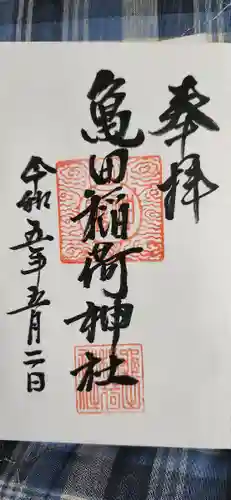 奉拝
亀田稲荷神社
令和五年五月二日